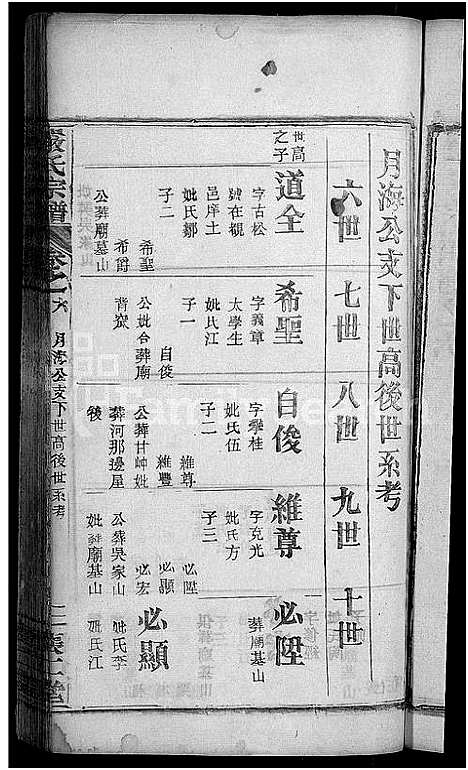 月海公支下世高後世系考
六世
七世
八世
九世
十世
世高之子
道全
字古松
號在觀
邑庠士
妣氏鄒
子二
希聖
希爵
公葬廟墓山
希聖
字義章
太學生
妣氏江
子一
自俊
公妣合葬廟
背窊
自俊
字攀桂
妣氏伍
子二
維尊
維豐
公葬甘㘰妣
葬河那邊屋
後
維尊
字克光
妣氏方
子三
必陞
必顯
必宏
公葬吳家山
妣葬廟墓山
必陞
葬廟墓山
必顯
妣氏李
妣氏江
嚴氏宗譜
卷之六
月海公支下世高後世系考